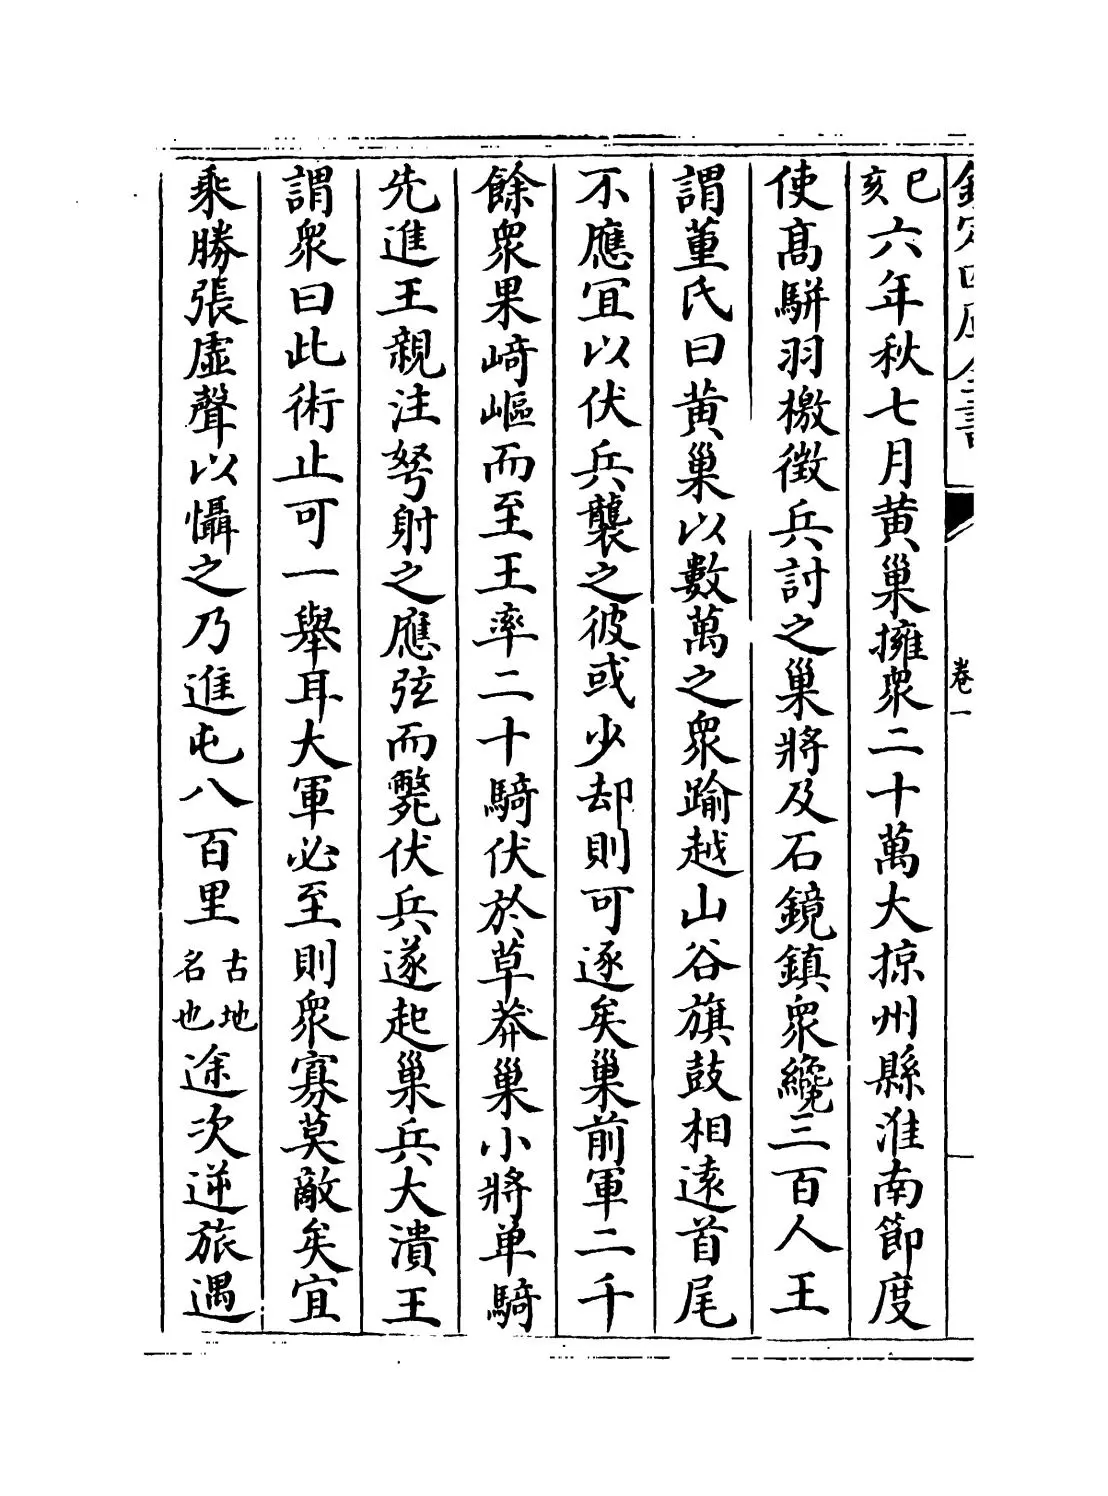 欽定四庫全書
卷一
己亥六年秋七月黄巢擁衆二十萬大掠州縣淮南節度
使髙駢羽檄徴兵討之巢將及石鏡鎮衆纔三百人王
謂董氏曰黄巢以數萬之衆踰越山谷旗鼓相逺首尾
不應宜以伏兵襲之彼或少却則可逐矣巢前軍二千
餘衆果崎嶇而至王率二十騎伏於草莽巢小將单騎
先進王親注弩射之應弦而斃伏兵遂起巢兵大潰王
謂衆曰此術止可一舉耳大軍必至則衆寡莫敵矣宜
乘勝張虚聲以懾之乃進屯八百里古地名也途次逆旅遇